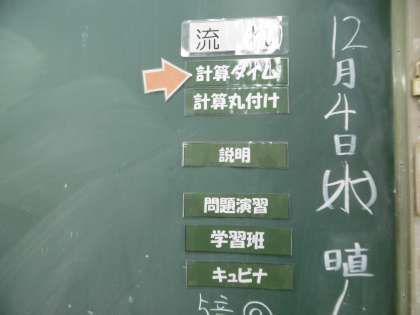 12月4日(水)
流れ
計算タイム
計算丸付け
説明
問題演習
学習班
キュビナ